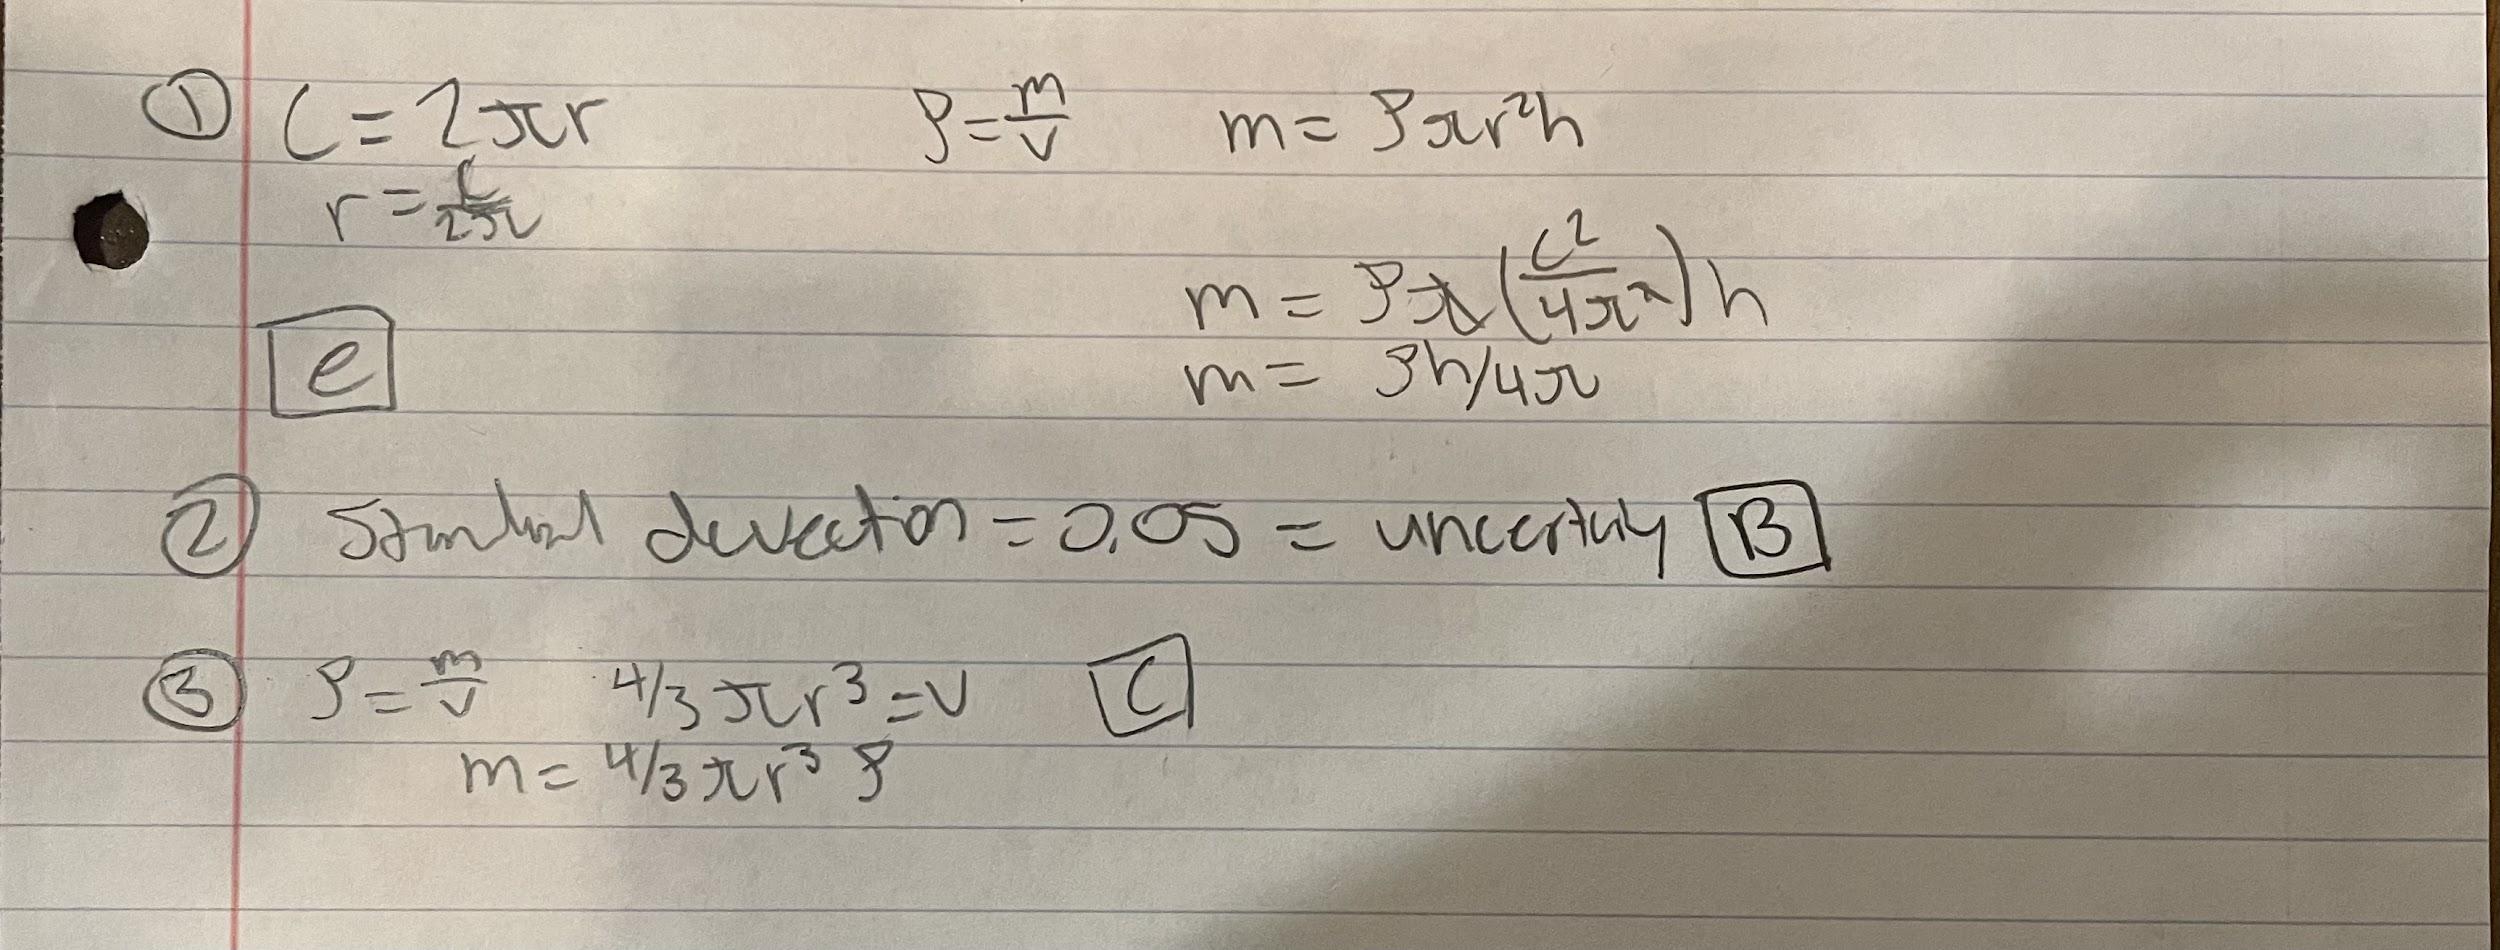 ① C = 2πr   ρ = m/v   m = ρπr²h
r = C/2π
m = ρπ(C²/4π²)h
e   m = ρh/4π
② Standard deviation = 0.05 = uncertainty B
③ ρ = m/v   4/3 πr³ = v   C
m = 4/3 πr³ ρ